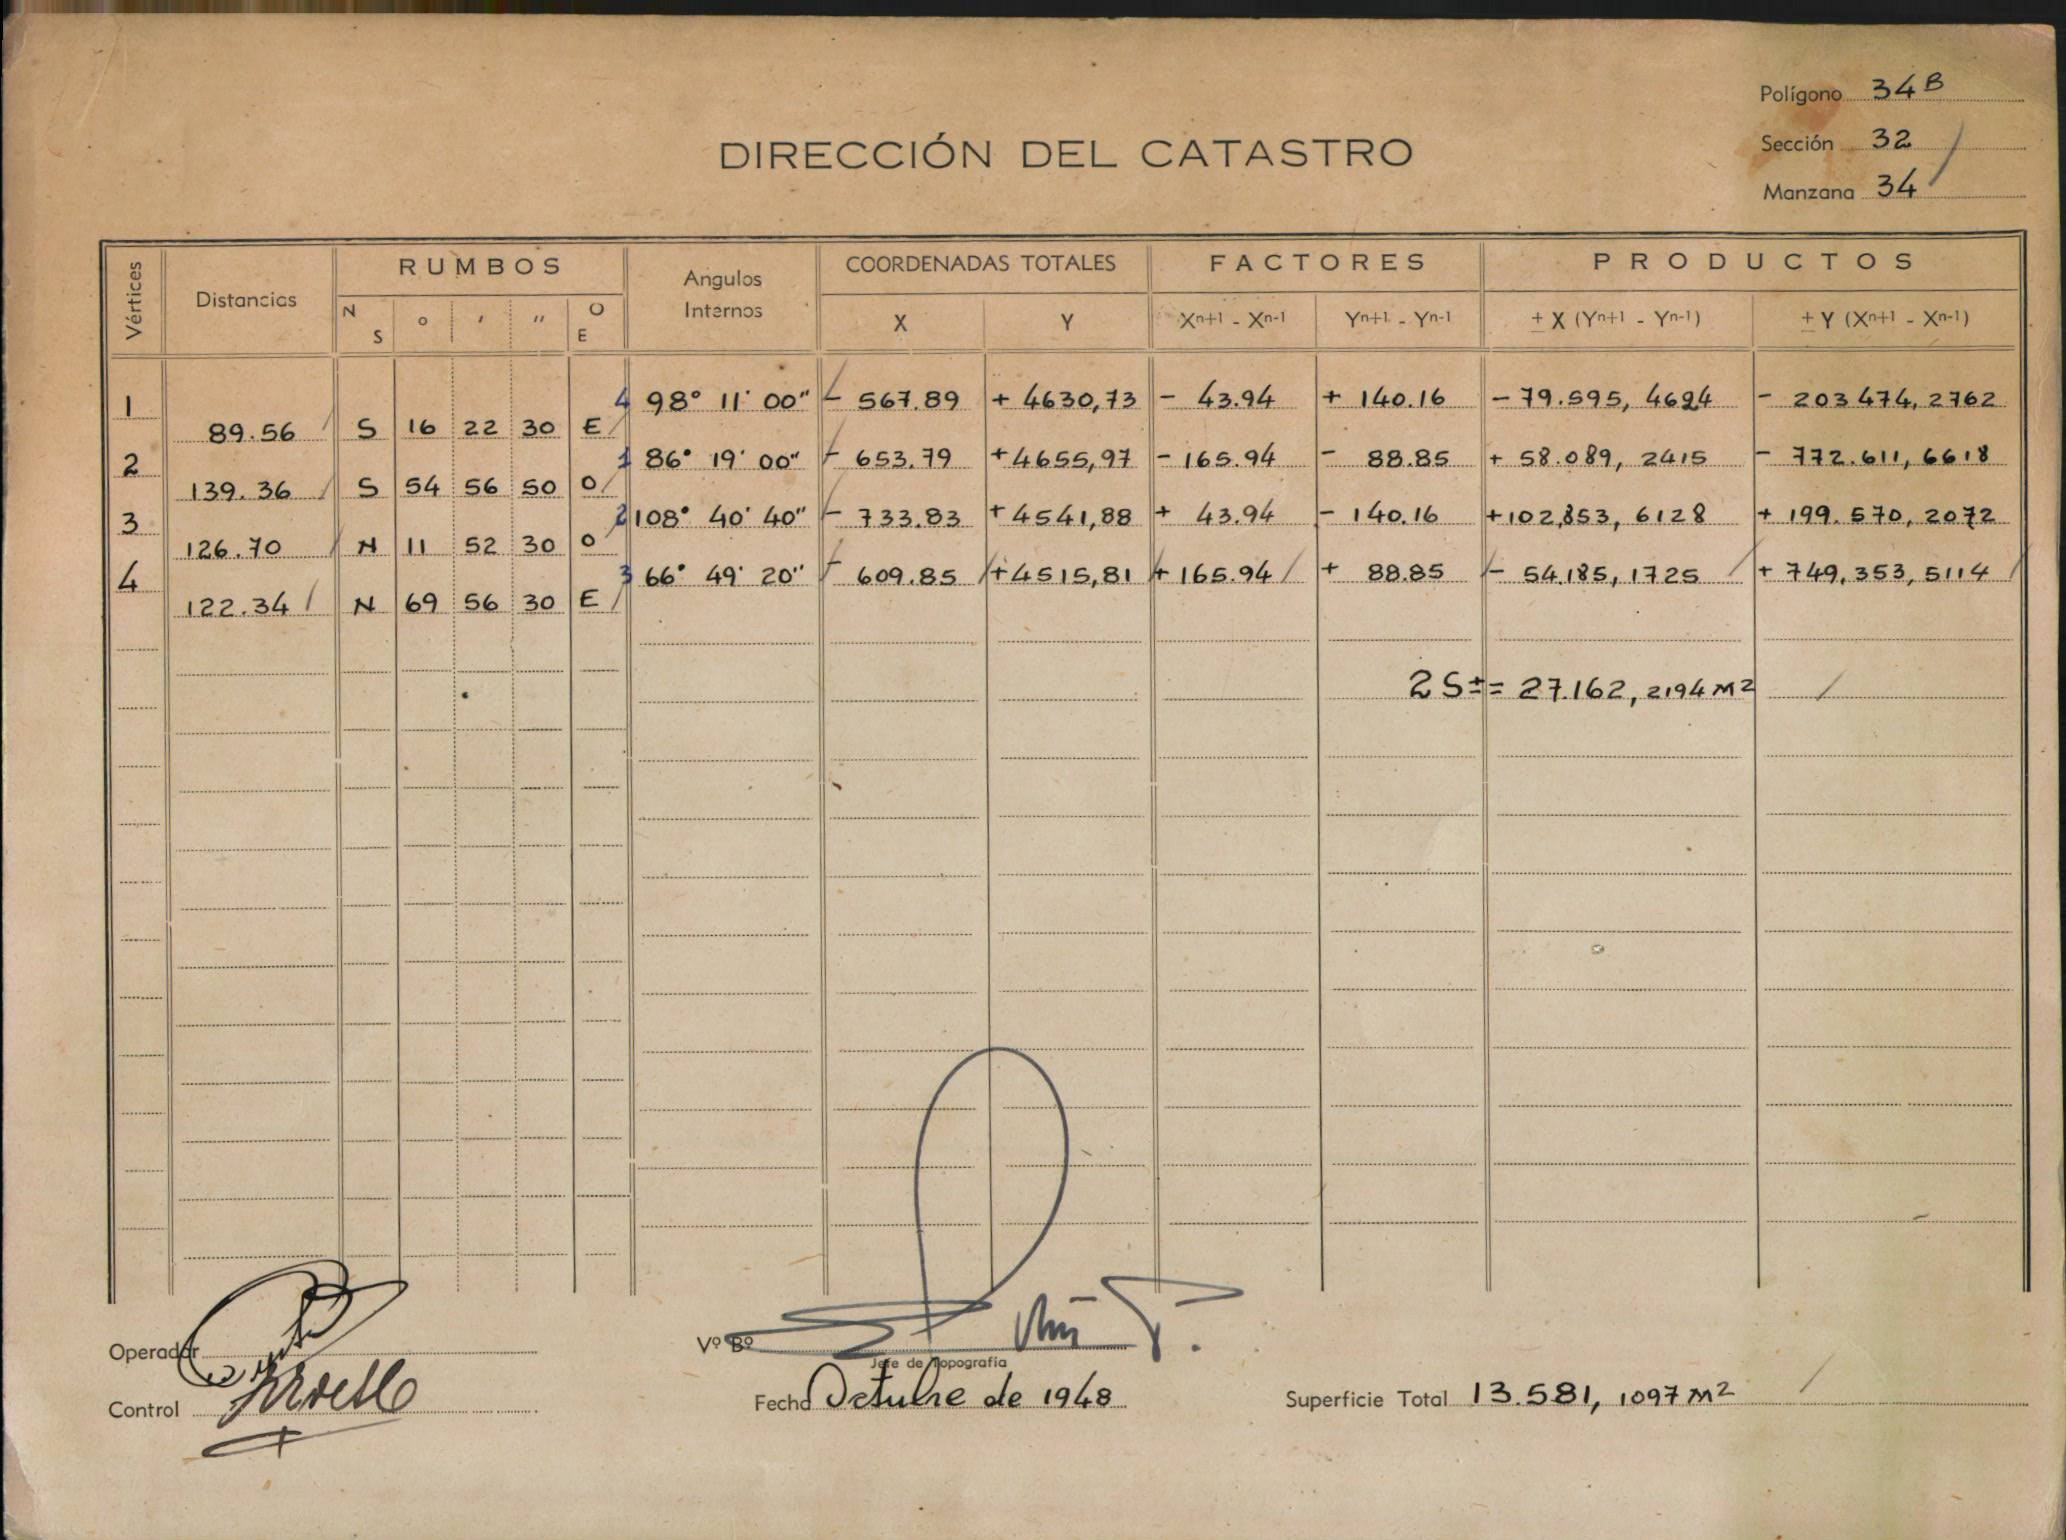 Polígono 34B
DIRECCIÓN DEL CATASTRO
Sección 32
Manzana 34
Vértices Distancias RUMBOS Angulos Internos COORDENADAS TOTALES FACTORES PRODUCTOS
N S ° ' " O E X Y Xn+1 - Xn-1 Yn+1 - Yn-1 ± X (Yn+1 - Yn-1) ± Y (Xn+1 - Xn-1)
1 4 98° 11' 00" - 567.89 + 4630,73 - 43.94 + 140.16 - 79.595, 4624 - 203474, 2762
89.56 S 16 22 30 E
2 1 86° 19' 00" - 653.79 + 4655,97 - 165.94 - 88.85 + 58.089, 2415 - 772.611, 6618
139.36 S 54 56 50 O
3 2 108° 40' 40" - 733.83 + 4541,88 + 43.94 - 140.16 + 102,853, 6128 + 199.570, 2072
126.70 N 11 52 30 O
4 3 66° 49' 20" - 609.85 + 4515,81 + 165.94 + 88.85 - 54.185, 1725 + 749,353, 5114
122.34 N 69 56 30 E
2 S ± = 27.162, 2194 M2
Operador
Vº Bº
Jefe de Topografía
Control
Fecha Octubre de 1948
Superficie Total 13.581, 1097 M2